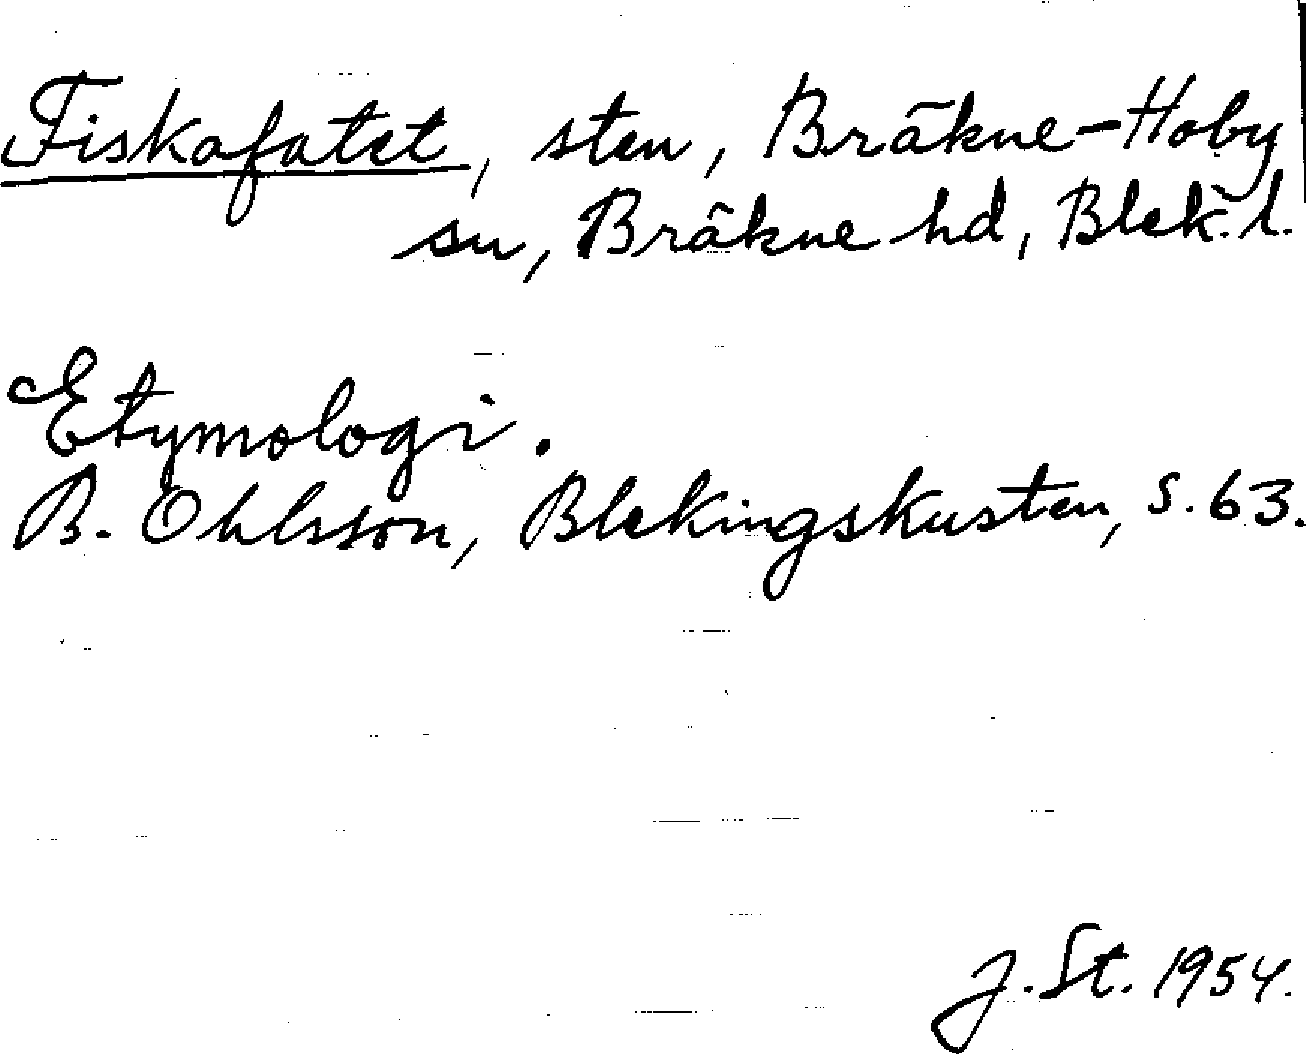 Fiskafatet, sten, Bräkne-Hoby
sn, Bräkne hd, Blek. l.
Etymologi.
B. Ohlsson, Blekingskusten, s. 63.
J. St. 1954.